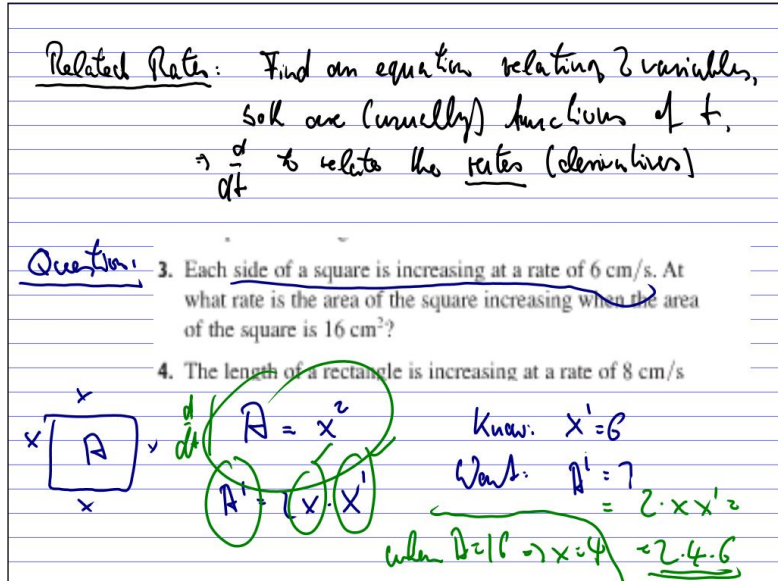 Related Rates: Find an equation relating 2 variables,
both are (usually) functions of t,
⇒ d/dt to relate the rates (derivatives)
Question: 3. Each side of a square is increasing at a rate of 6 cm/s. At
what rate is the area of the square increasing when the area
of the square is 16 cm²?
4. The length of a rectangle is increasing at a rate of 8 cm/s
x
x A x
x
d/dt A = x²
A' = 2x · x'
Know: x' = 6
Want: A' = ?
= 2·x x' =
when A=16 ⇒ x=4 = 2·4·6